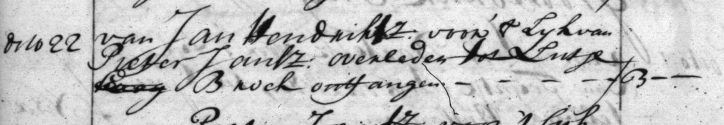 dito 22 van Jan Hendrikz: voor 't Lyk van
Pieter Jansz: overleden tot Lutje
Broek ontfangen - - - - - - 3 - -